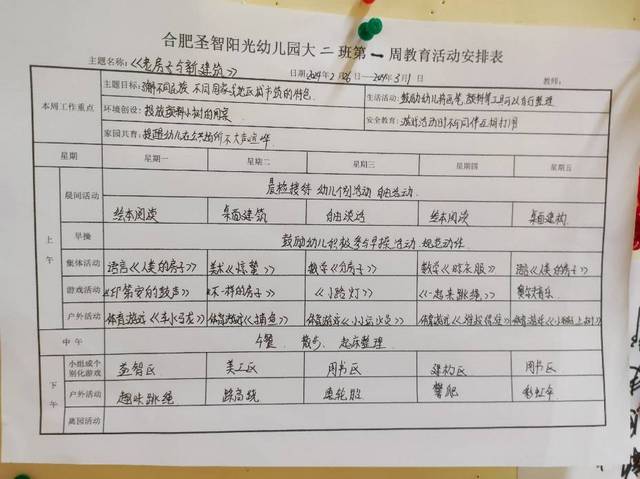 合肥圣智阳光幼儿园大二班第一周教育活动安排表
主题名称：《老房子与新建筑》 日期2024年2月26日—2024年3月1日 教师：
本周工作重点 主题目标：了解不同民族、不同国家、地区城市房的特色 生活活动：鼓励幼儿将画笔、颜料等工具可以自行整理
环境创设：投放颜料 安全教育：游戏活动时不
家园共育：提醒幼儿在公共场所不大声喧哗
星期 星期一 星期二 星期三 星期四 星期五
上午 晨间活动 晨检接待 幼儿个别活动 自由活动
绘本阅读 桌面建筑 自由谈话 绘本阅读 桌面建构
早操 鼓励幼儿积极参与早操活动 规范动作
集体活动 语言《人类的房子》 美术《惊蛰》 数学《分房子》 数学《晾衣服》 语言《人类的房子》
游戏活动 《印第安的鼓声》 《不一样的房子》 《小路灯》 《一起来跳绳》 奥尔夫音乐
户外活动 体育游戏《车水马龙》 体育游戏《捕鱼》 体育游戏《小小运火员》 体育游戏 体育游戏
中午 午餐、散步、起床整理
下午 小组或个别化游戏 益智区 美工区 图书区 建构区 图书区
户外活动 趣味跳绳 踩高跷 滚轮胎 攀爬 彩虹伞
离园活动